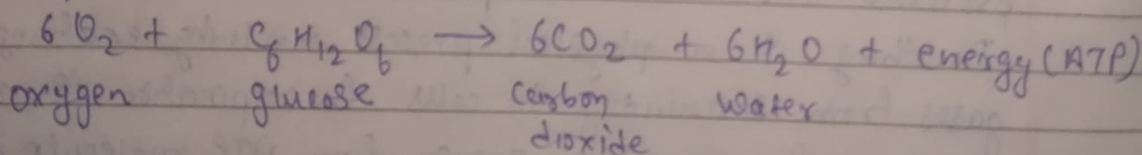 6O₂ + C₆H₁₂O₆ → 6CO₂ + 6H₂O + energy (ATP)
oxygen glucose Carbon water
dioxide